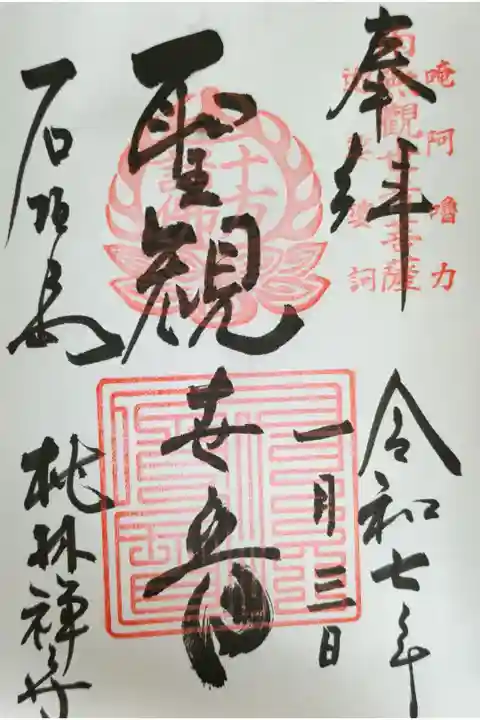 奉拝
令和七年
一月三日
聖観世音
石垣島
桃林禅寺
唵阿嚕力
南無観世音菩薩